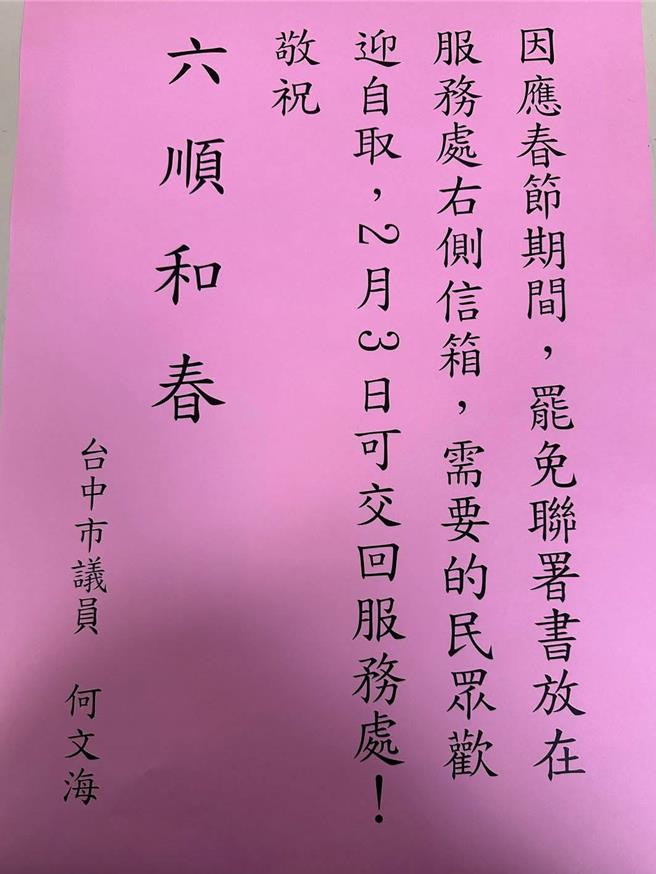 因應春節期間，罷免聯署書放在
服務處右側信箱，需要的民眾歡
迎自取，2月3日可交回服務處！
敬祝
六順和春
台中市議員 何文海